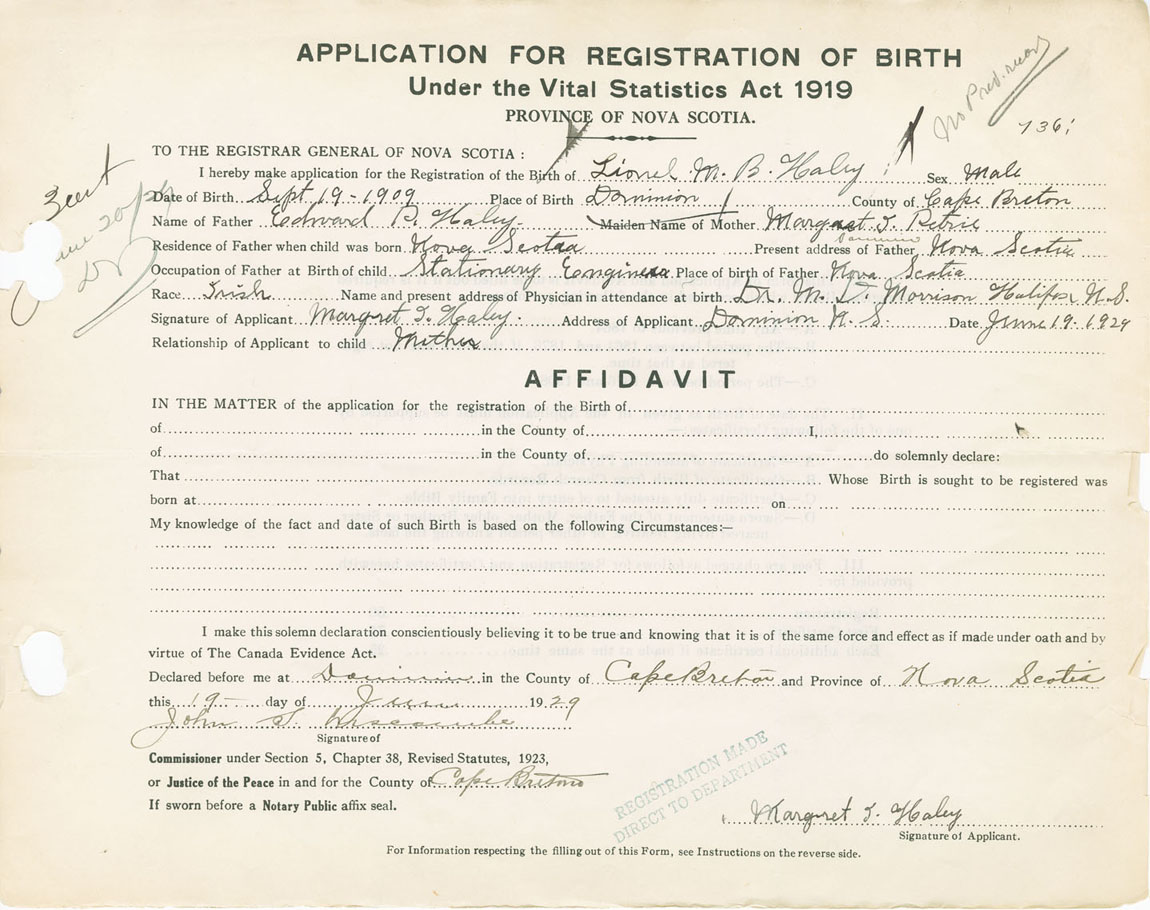 APPLICATION FOR REGISTRATION OF BIRTH
Under the Vital Statistics Act 1919
PROVINCE OF NOVA SCOTIA.
No Prev. record
736
TO THE REGISTRAR GENERAL OF NOVA SCOTIA :
I hereby make application for the Registration of the Birth of Lionel M. B. Haley Sex Male
Date of Birth Sept. 19 - 1909 Place of Birth Dominion County of Cape Breton
Name of Father Edward P. Haley. Maiden Name of Mother Margaret T. Petrie
Residence of Father when child was born Nova Scotia Present address of Father Dominion Nova Scotia
Occupation of Father at Birth of child Stationary Engineer Place of birth of Father Nova Scotia
Race Irish Name and present address of Physician in attendance at birth Dr. M. T. Morrison Halifax N.S.
Signature of Applicant Margret T. Haley. Address of Applicant Dominion N. S. Date June 19. 1929
Relationship of Applicant to child Mother
AFFIDAVIT
IN THE MATTER of the application for the registration of the Birth of
of in the County of I,
of in the County of do solemnly declare:
That Whose Birth is sought to be registered was
born at on
My knowledge of the fact and date of such Birth is based on the following Circumstances:—
I make this solemn declaration conscientiously believing it to be true and knowing that it is of the same force and effect as if made under oath and by
virtue of The Canada Evidence Act.
Declared before me at Dominion in the County of Cape Breton and Province of Nova Scotia
this 19 - day of June 1929
John S.
Signature of
Commissioner under Section 5, Chapter 38, Revised Statutes, 1923,
or Justice of the Peace in and for the County of Cape Breton
If sworn before a Notary Public affix seal.
REGISTRATION MADE
DIRECT TO DEPARTMENT
Margret T. Haley
Signature of Applicant.
For Information respecting the filling out of this Form, see Instructions on the reverse side.